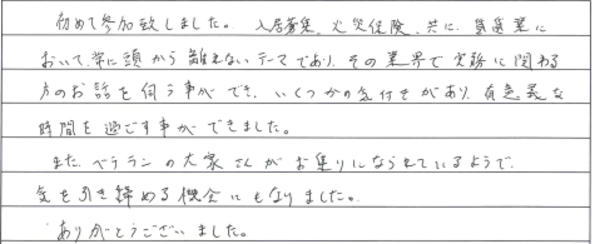 初めて参加致しました。入居募集、火災保険、共に、賃貸業に
おいて、常に頭から離れないテーマであり、その業界で実務に関わる
方のお話を伺う事ができ、いくつかの気付きがあり、有意義な
時間を過ごす事ができました。
また、ベテランの大家さんがお集りになられているようで、
気を引き締める機会にもなりました。
ありがとうございました。